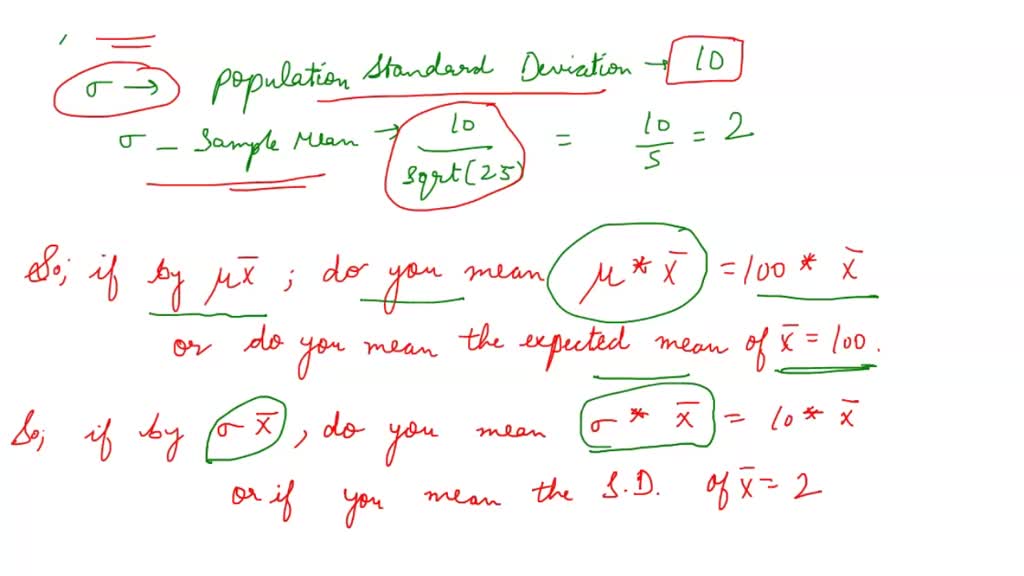 σ → Population Standard Deviation → 10
σ - Sample Mean → 10 / sqrt(25) = 10/5 = 2
So; if by μx̄ ; do you mean μ * x̄ = 100 * x̄
or do you mean the expected mean of x̄ = 100.
So; if by σx̄, do you mean σ * x̄ = 10 * x̄
or if you mean the S.D. of x̄ = 2